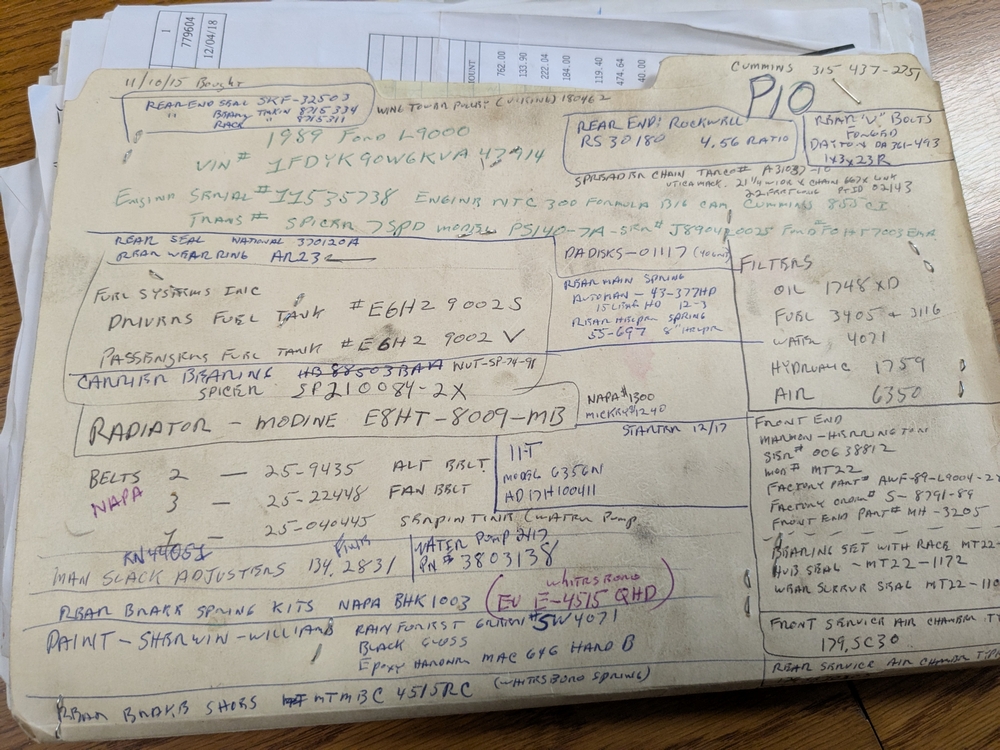 1
779604
12/04/18
OUNT
762.00
133.90
222.04
184.00
119.40
474.64
40.00
CUMMINS 315 437-2751
P10
11/10/15 Bought
REAR END SEAL SKF-32503
" BEARING TIMKIN 8715334
RACE " 8715311
WING TOWER PULLEY (VIKING) 180462
1989 FORD L-9000
VIN # 1FDYK90W6KVA47914
REAR END: ROCKWELL
RS 30180 4.56 RATIO
REAR "U" BOLTS
FORGED
DAYTON DA 361-493
1x3x23R
SPREADER CHAIN TARCO# A31037-10
UTICA MACK. 21 1/4 WIDE X CHAIN 667X LINK
PT ID 02143
ENGINE SERIAL # 11535738 ENGINE NTC 300 FORMULA BIG CAM CUMMINS 855 CI
TRANS # SPICER 7SPD MODEL PS140-7A-SER# J890420025 FORD# FOHT7003EMA
REAR SEAL NATIONAL 370120A
REAR WEAR RING AR23
PADISKS-01117
REAR MAIN SPRING
AUTOMAN - 43-377HD
15 LEAF HD 12-3
REAR HELPER SPRING
55-697 8" HELPER
FUEL SYSTEMS INC
DRIVERS FUEL TANK #E6HZ 9002 S
PASSENGERS FUEL TANK #E6HZ 9002 V
CARRIER BEARING HB 88503BAA NUT-SP-74-91
SPICER SP210084-2X
RADIATOR - MODINE E8HT-8009-MB
NAPA #1300
MICKEY #1240
STARTER 12/17
IIT
MODEL 6356N
AD17H100411
FILTERS
OIL 1748 XD
FUEL 3405 & 3116
WATER 4071
HYDRAULIC 1759
AIR 6350
BELTS 2 — 25-9435 ALT BELT
NAPA 3 — 25-22448 FAN BELT
1 25-040445 SERPINTINE (WATER PUMP
KN44051
MAN SLACK ADJUSTERS 134.2831
WATER PUMP 2/17
PN# 3803138
REAR BRAKE SPRING KITS NAPA BHK1003
WHITESBORO
EU E-4515 QHD
PAINT - SHERWIN-WILLIAMS RAIN FOREST GREEN #SW4071
BLACK GLOSS
EPOXY HARDNER MAC 646 HARD B
REAR BRAKE SHOES MTMBC 4515RC (WHITESBORO SPRING)
FRONT END
MARMON-HERRINGTON
SER# 00638812
MOD# MT22
FACTORY PART# AWF-89-L9004-22
FACTORY ORDER# S-8791-89
FRONT END PART# MH-3205
BEARING SET WITH RACE MT22-
HUB SEAL - MT22-1172
WEAR SLEEVE SEAL MT22-110
FRONT SERVICE AIR CHAMBER T
179.SC30
REAR SERVICE AIR CHAMBER TYPE